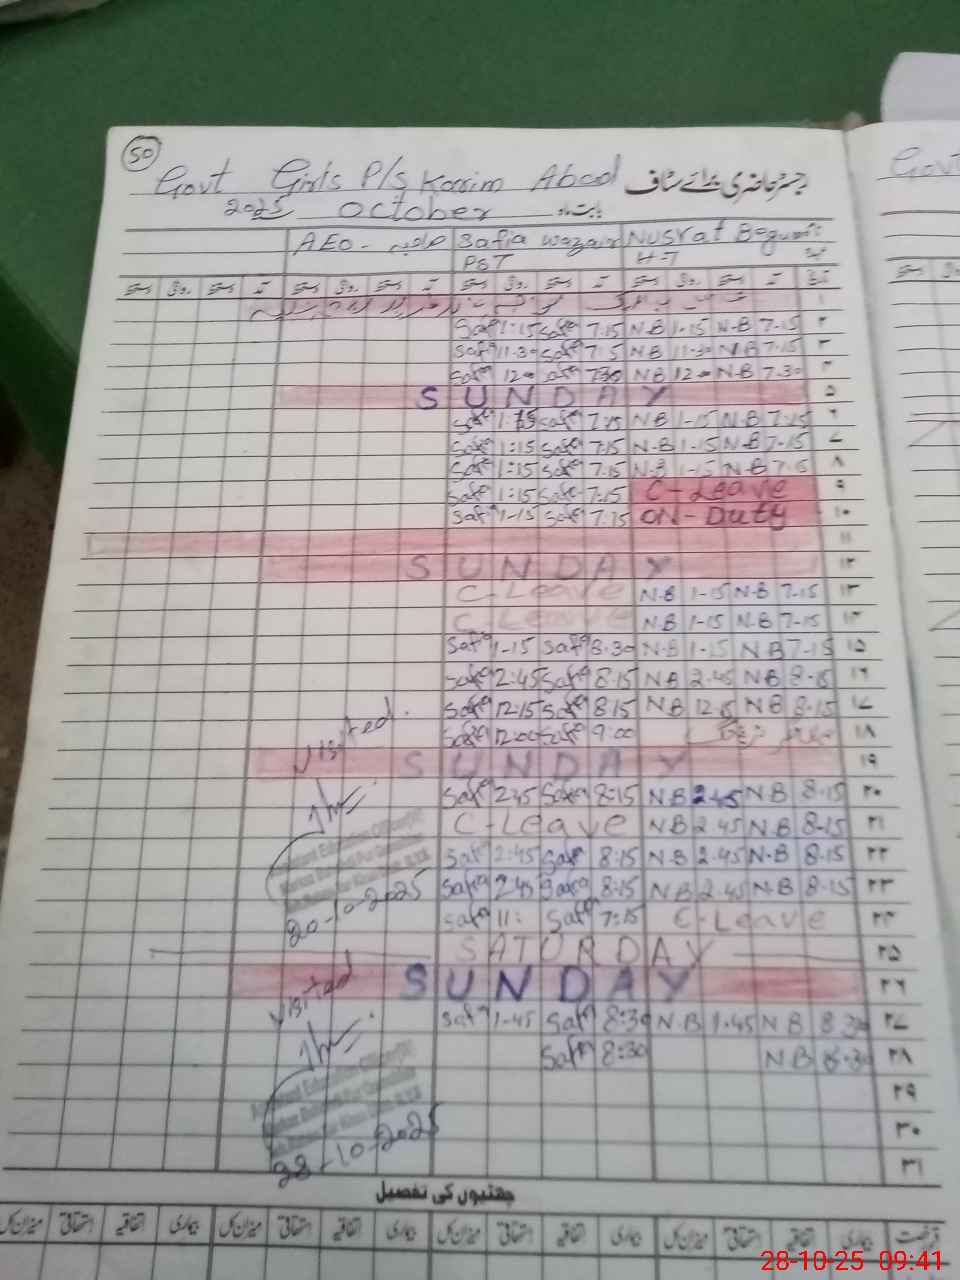 50
Govt Girls P/S Karim Abad رجسٹر حاضری برائے سٹاف
2025 October بابت ماہ
AEO - Safia Wazair Nusrat Begum
PST HT
دستخط روانگی دستخط آمد دستخط روانگی دستخط آمد دستخط روانگی دستخط آمد دستخط روانگی دستخط آمد تاریخ
۱
Safia 1:15 Safia 7:15 N-B 1-15 N-B 7-15 ۲
Safia 11-30 Safia N B 11-30 N-B 7-15 ۳
Safia 12 Safia 7:30 N B N-B 7.30 ۴
SUNDAY ۵
Safia Safia 7:15 N-B 1-15 N-B 7:15 ۶
Safia 1:15 Safia 7:15 N-B 1-15 N-B 7-15 ۷
Safia 1:15 Safia 7.15 N-B 1-15 N-B ۸
Safia 1:15 Safia 7:15 C-Leave ۹
Safia 1-15 Safia 7:15 ON-Duty ۱۰
۱۱
SUNDAY ۱۲
C-Leave N-B 1-15 N-B 7-15 ۱۳
C-Leave N-B 1-15 N-B 7-15 ۱۴
Safia 1-15 Safia 8-30 N-B 1-15 N B 7-15 ۱۵
Safia 2:45 Safia 8-15 N B 2.45 N B 8-15 ۱۶
Safia 12:15 Safia 8:15 N B N B 8-15 ۱۷
Visited.
Safia 12:00 Safia 9:00 ۱۸
SUNDAY ۱۹
Safia 2:45 Safia 8:15 N.B 2-45 N B 8-15 ۲۰
C-Leave N-B 2.45 N-B 8-15 ۲۱
Assistant Education Officer
Safia 2:45 Safia 8:15 N-B 2.45 N-B 8-15 ۲۲
Safia 2:45 Safia 8:15 N-B 2.45 N-B 8-15 ۲۳
20-10-2025
Safia 11: Safia 7:15 C-Leave ۲۴
SATURDAY ۲۵
SUNDAY ۲۶
Visited
Safia 1-45 Safia 8:30 N.B 1.45 N B 8 30 ۲۷
Safia 8:30 N-B 8-30 ۲۸
Assistant Education Officer
۲۹
۳۰
28-10-2025
۳۱
چھٹیوں کی تفصیل
میزان کل استحقاقیہ اتفاقیہ بیماری میزان کل استحقاقیہ اتفاقیہ بیماری میزان کل استحقاقیہ اتفاقیہ بیماری میزان کل استحقاقیہ اتفاقیہ رخصت
Govt
28-10-25 09:41